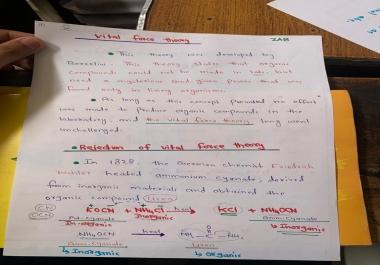 Vital force theory
ZAB
• This theory was developed by
Berzelius. This theory states that organic
compounds could not be made in lab, but
need a mysterious God given power that was
found only in living organism.
• As long as this concept no effort
was made to produce organic compounds in the
laboratory, and the vital force theory long went
unchallenged.
• Rejection of vital force theory
• In 1828, the German chemist Friedrich
Wohler heated ammonium cyanate, derived
from inorganic materials and obtained the
organic compound (urea)
KOCN + NH4Cl heat KCl + NH4OCN
Pot. cyanate Inorganic Amm. cyanate
In-organic ↳ Inorganic
NH4OCN heat NH2 - C - NH2
O
Amm. cyanate Urea
↳ Inorganic ↳ Organic